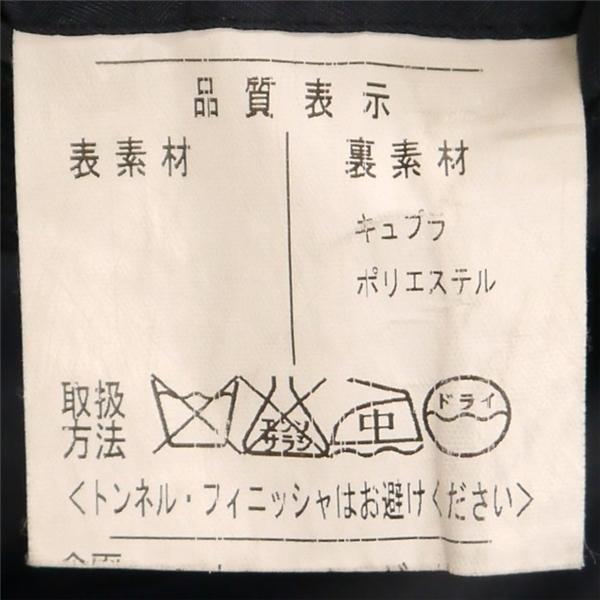 品質表示
表素材 裏素材
キュプラ
ポリエステル
取扱方法
エンソサラシ 中 ドライ
<トンネル・フィニッシャはお避けください>